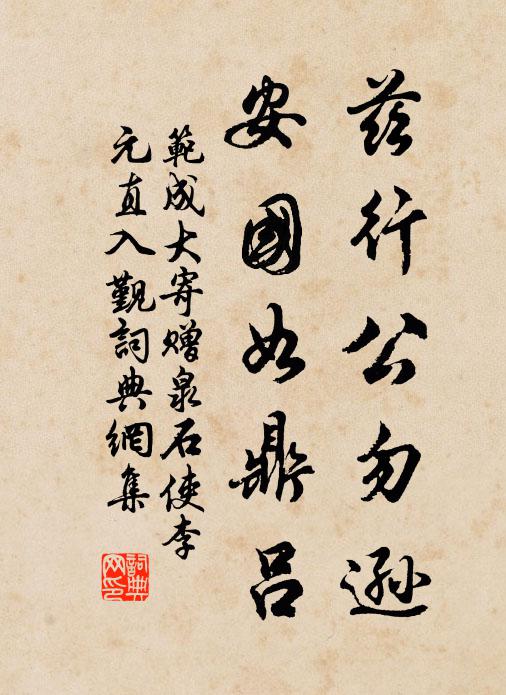 兹行公勿遜
安國如鼎呂
範成大寄贈泉石使李
元直入觀詞典網集
詞典网印